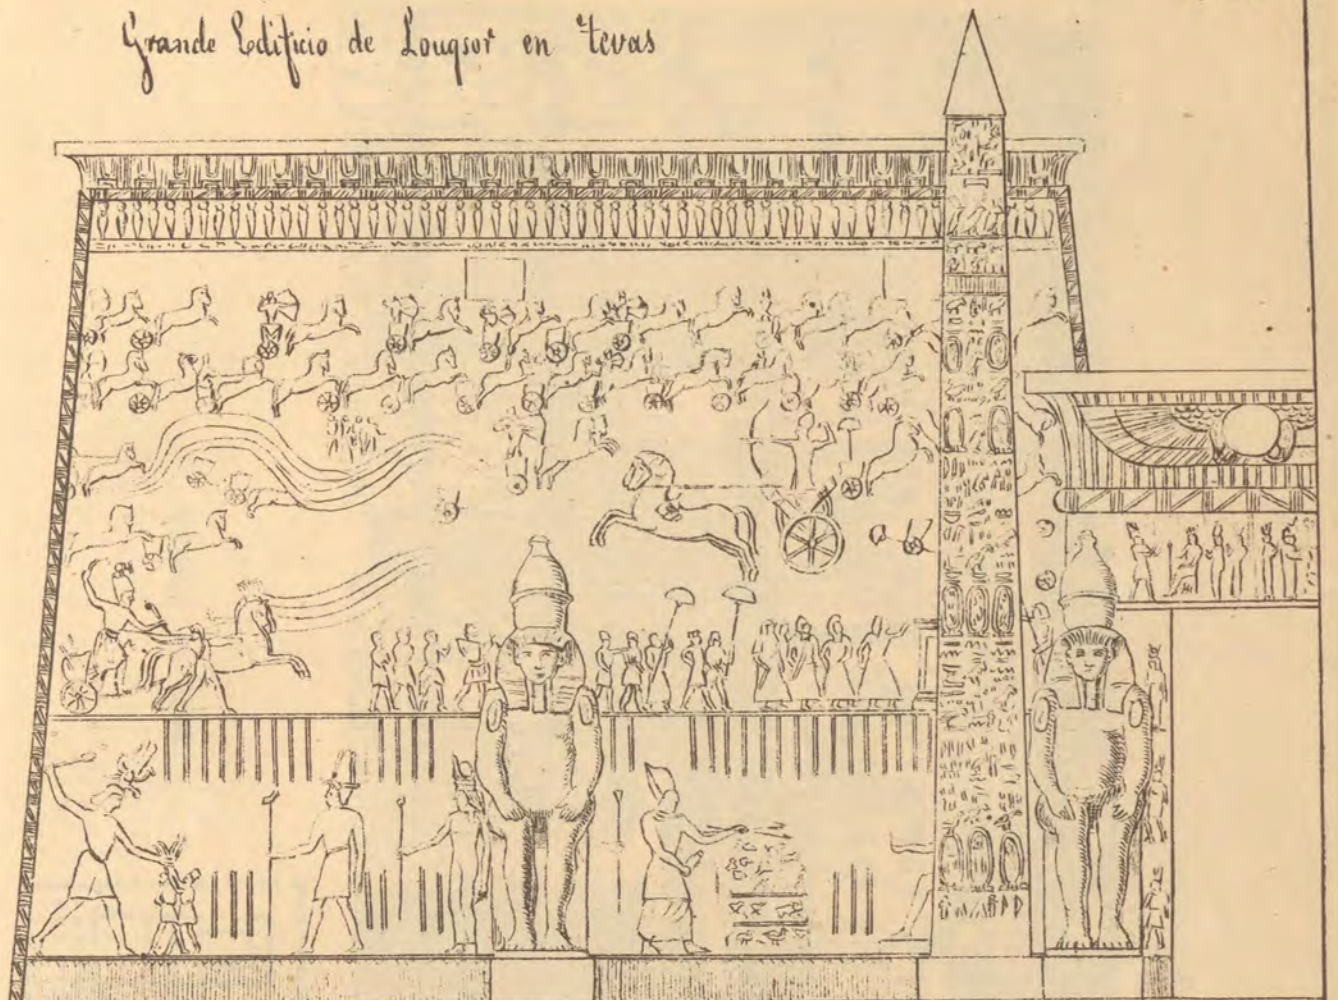 Grande Edificio de Louqsor en tevas